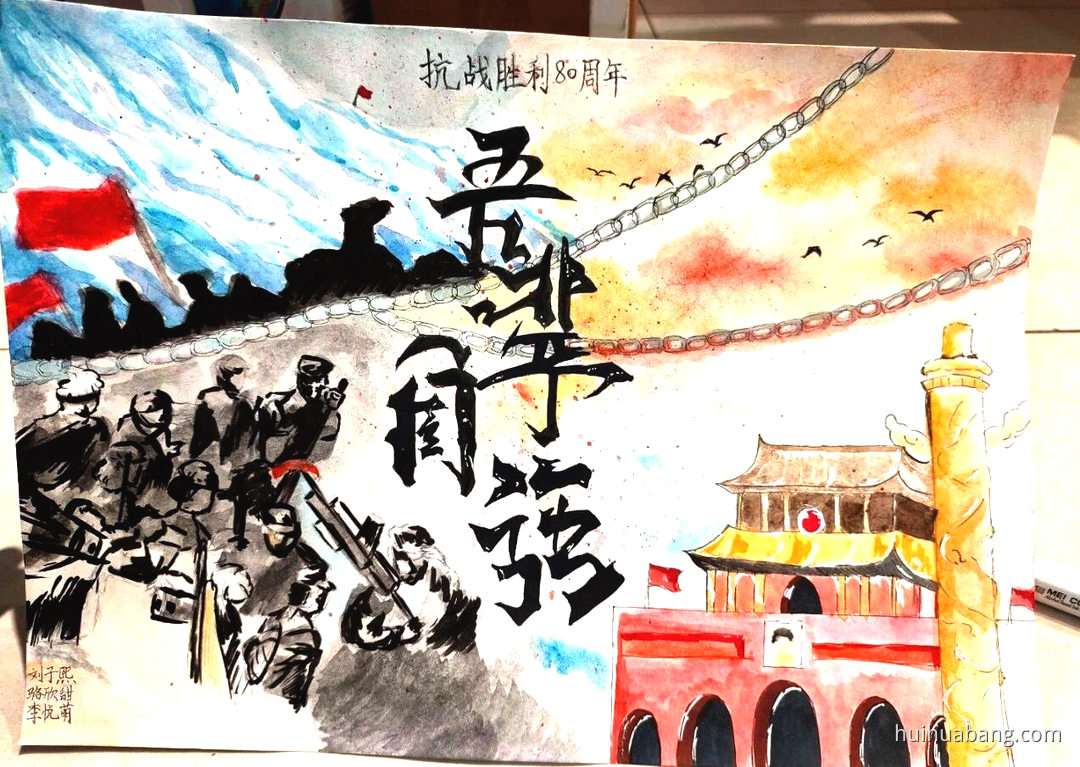 抗战胜利80周年
吾辈
自强
刘子熙
欣甜
李悦萌
MEI
huihuabang.com